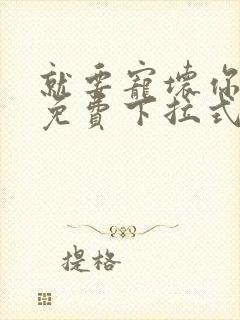 就要寵壞你
免費下拉式
提格